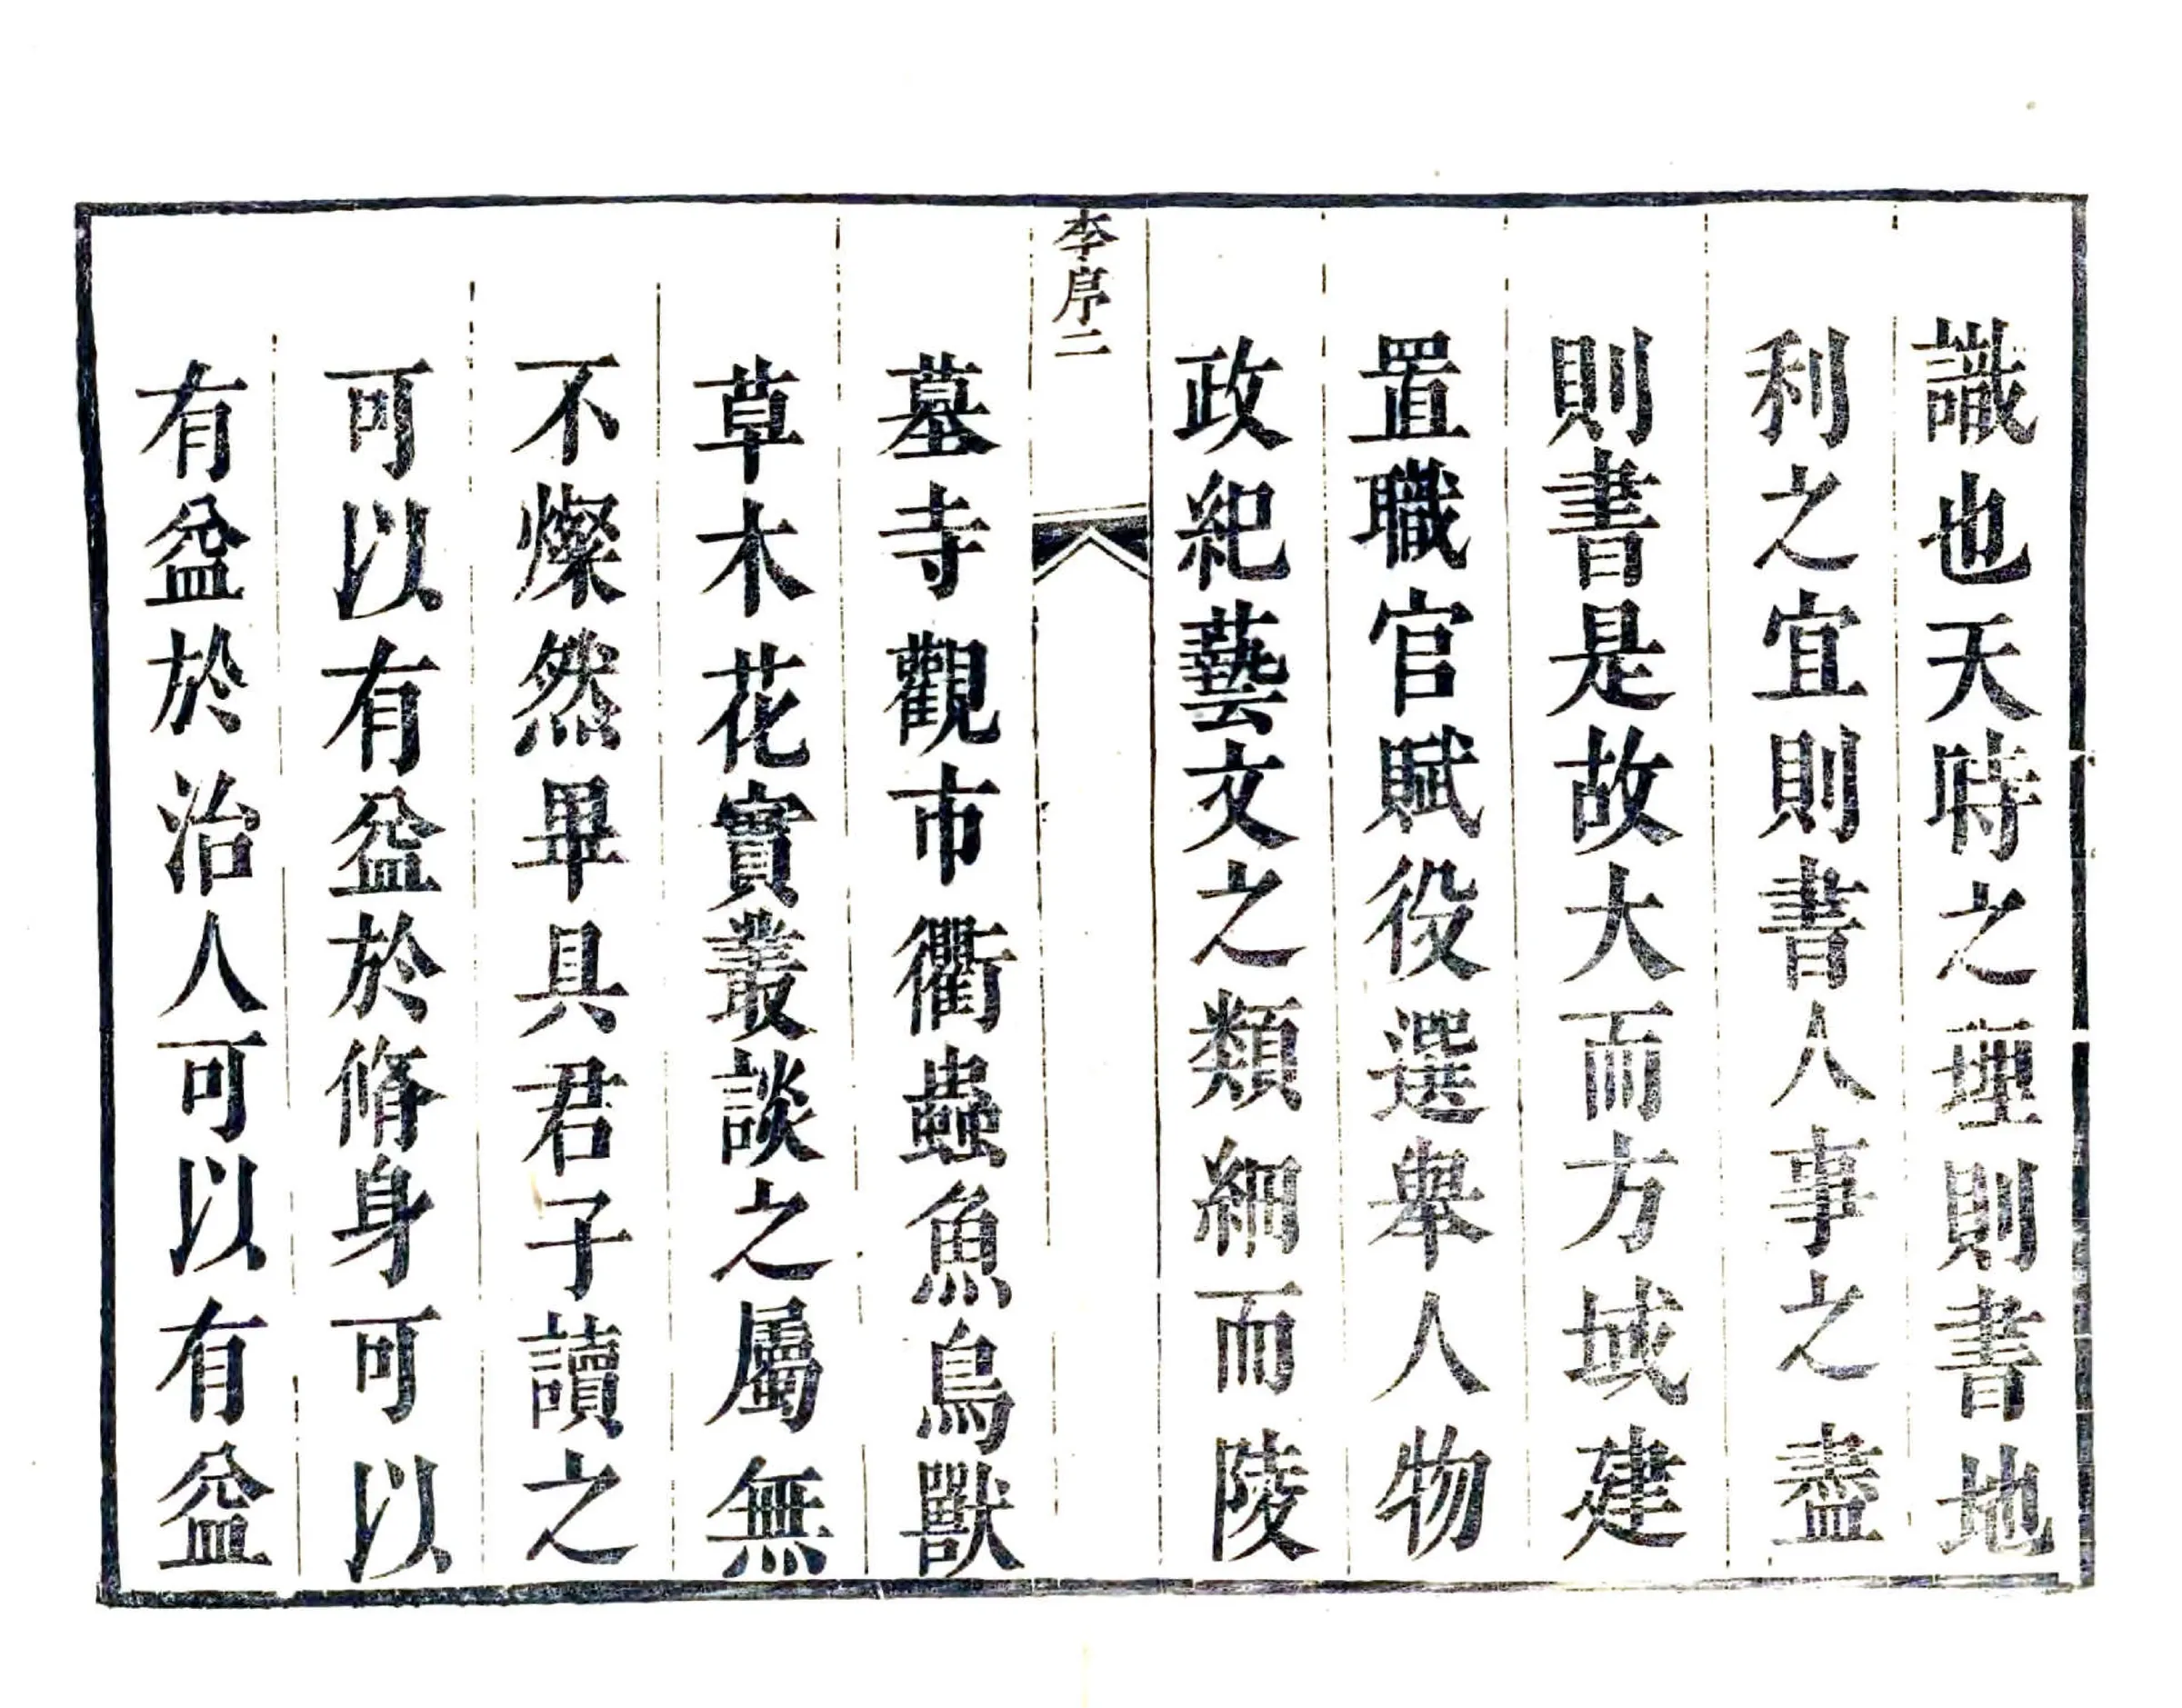 識也天時之理則書地
利之宜則書人事之盡
則書是故大而方域建
置職官賦役選舉人物
政紀藝文之類細而陵
李序二
墓寺觀市衢蟲魚鳥獸
草木花實叢談之屬無
不燦然畢具君子讀之
可以有益於脩身可以
有益於治人可以有益